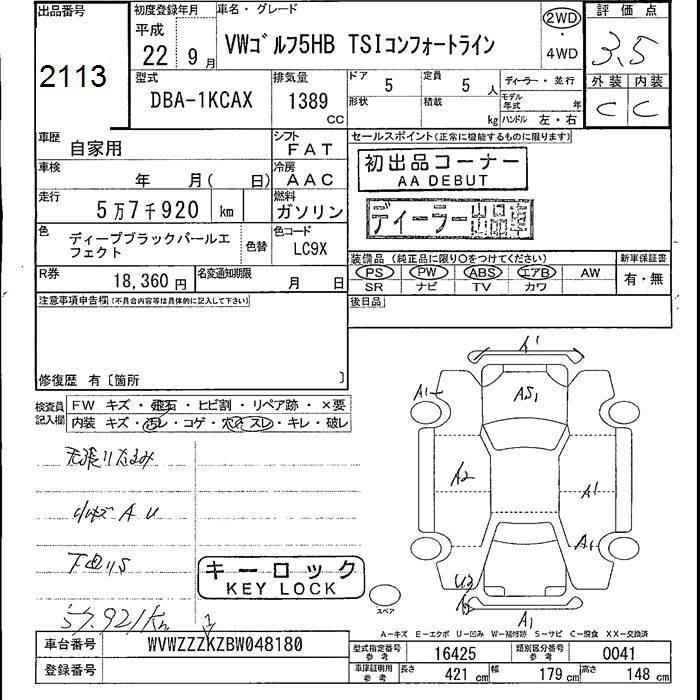 出品番号
2113
初度登録年月
平成
22 9月
車名・グレード
VWゴルフ5HB TSIコンフォートライン
2WD
・
4WD
評価点
3.5
外装 内装
C C
型式
DBA-1KCAX
排気量
1389
CC
ドア 5
定員 5 人
形状
積載
kg
ディーラー・並行
モデル年式 年
ハンドル 左・右
車歴 自家用
シフト FAT
車検 年 月( 日)
冷房 AAC
走行 5万7千920 km
燃料 ガソリン
色 ディープブラックパールエフェクト
色替
色コード LC9X
R券 18,360円
名変通知期限 月 日
セールスポイント(正常に機能するものに限ります)
初出品コーナー
AA DEBUT
ディーラー出品車
装備品(純正品に限り○をつけてください)
新車保証書
PS PW ABS エアB AW
有・無
SR ナビ TV カワ
後日品
注意事項申告欄(不具合内容等は具体的に記入して下さい)
修復歴 有〔箇所 〕
検査員記入欄
FW キズ・飛石・ヒビ割・リペア跡・×要
内装 キズ・汚レ・コゲ・穴・スレ・キレ・破レ
天張りたるみ
小キズ A U
下回りS
57.921km
キーロック
KEY LOCK
A'
A1
AS1
A2
A'
A1
U3
A1
スペア
A-キズ E-エクボ U-凹み W-補修跡 S-サビ C-腐食 XX-交換済
車台番号 WVWZZZ1KZBW048180
登録番号
型式指定番号 参考 16425
類別区分番号 参考 0041
車庫証明用 参考
長さ 421 cm
幅 179 cm
高さ 148 cm